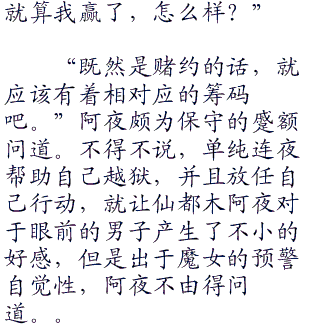 就算我赢了，怎么样？”
“既然是赌约的话，就
应该有着相对应的筹码
吧。”阿夜颇为保守的蹙额
问道。不得不说，单纯连夜
帮助自己越狱，并且放任自
己行动，就让仙都木阿夜对
于眼前的男子产生了不小的
好感，但是出于魔女的预警
自觉性，阿夜不由得问
道。。